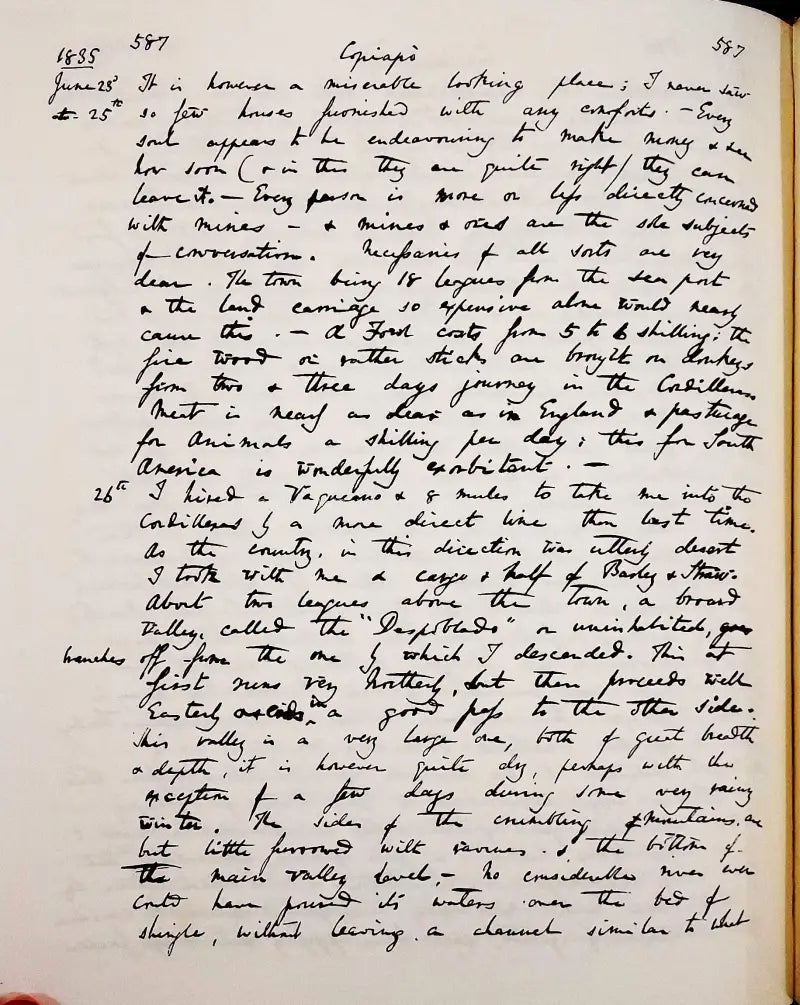 587 Copiapò 587
1835
June 23d It is however a miserable looking place; I never saw
to 25th so few houses furnished with any comforts. — Every
soul appears to be endeavouring to make money & see
how soon (& in this they are quite right) they can
leave it. — Every person is more or less directly concerned
with mines — & mines & ores are the sole subjects
of conversation. Necessaries of all sorts are very
dear. The town being 18 leagues from the sea port
& the land carriage so expensive alone would nearly
cause this. — A Fowl costs from 5 to 6 shilling: the
fire wood or rather sticks are brought on donkeys
from two & three days journey in the Cordilleras
Meat is nearly as dear as in England & pasturage
for Animals a shilling per day; this for South
America is wonderfully exorbitant. —
26th I hired a Vaqueano & 8 mules to take me into the
Cordilleras by a more direct line than last time.
As the country, in this direction was utterly desert
I took with me a cargo & half of Barley & Straw.
About two leagues above the town, a broard
Valley, called the "Despoblado" or uninhabited,
branches off from the one by which I descended. This at
first runs very Northerly, but then proceeds well
Easterly in a good pass to the other side.
This valley is a very large one, both of great breadth
& depth, it is however quite dry, perhaps with the
exception of a few days during some very rainy
winter. The sides of the crumbling mountains, are
but little furrowed with ravines. & the bottom of
the main valley level, — no considerable river ever
could have poured its waters over the bed of
shingle, without leaving a channel similar to what